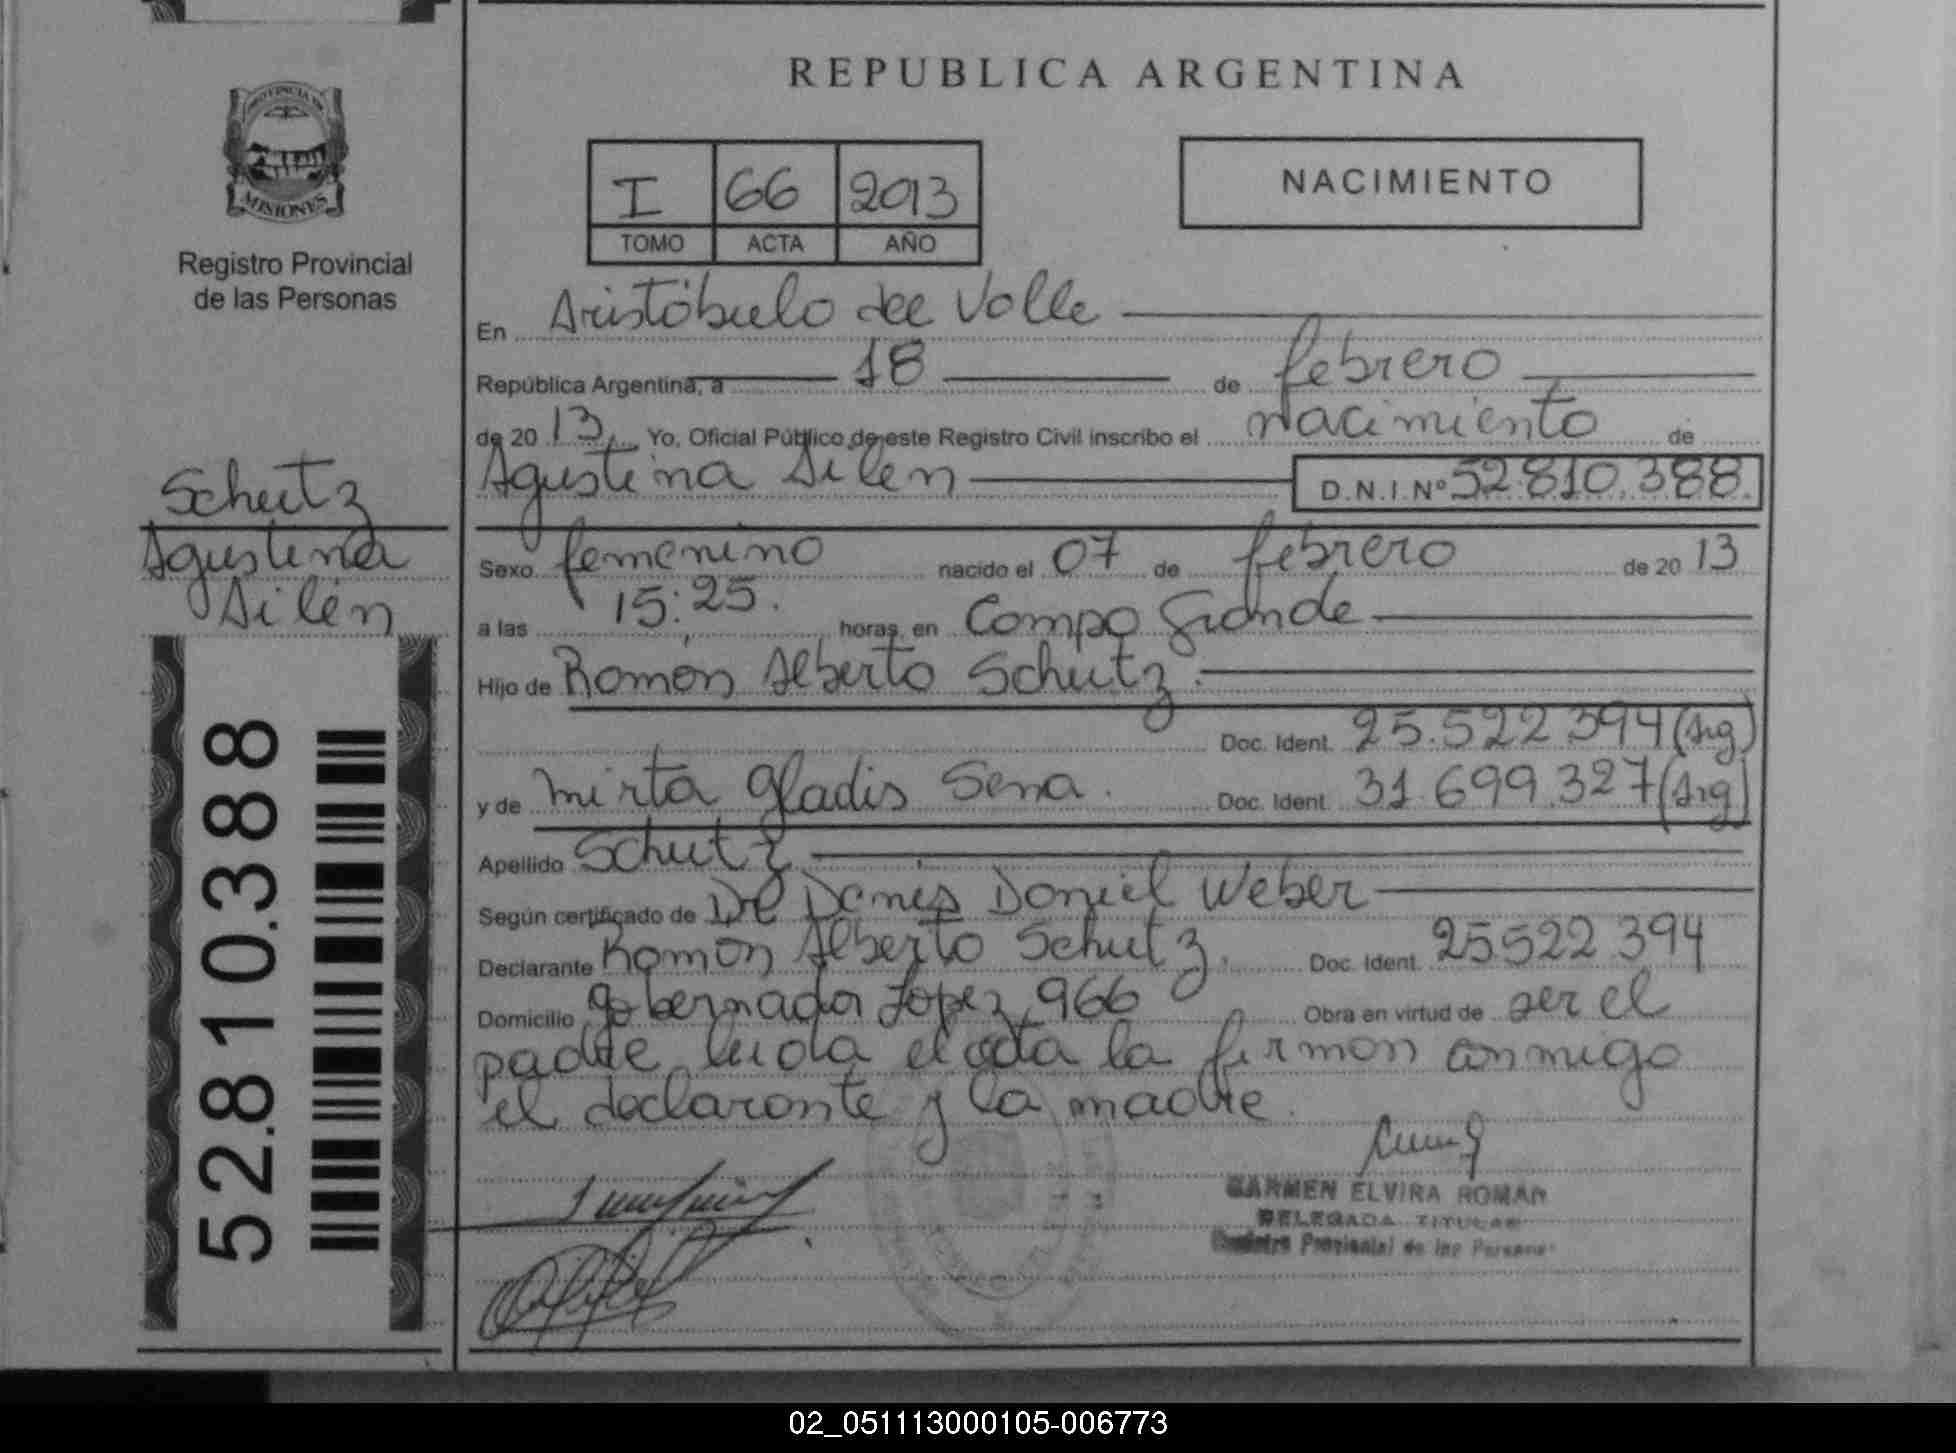 REPUBLICA ARGENTINA
PROVINCIA DE
MISIONES
Registro Provincial
de las Personas
I 66 2013
TOMO ACTA AÑO
NACIMIENTO
En Aristóbulo del Valle
República Argentina, a 18 de febrero
de 20 13, Yo, Oficial Público de este Registro Civil inscribo el nacimiento de
Agustina Ailen D.N.I. Nº 52.810.388
Schutz
Agustina
Ailén
Sexo femenino nacido el 07 de febrero de 20 13
a las 15:25. horas, en Campo Grande
Hijo de Ramón Alberto Schutz.
Doc. Ident. 25.522.394 (Arg)
y de Mirta Gladis Sena. Doc. Ident. 31.699.327 (Arg)
Apellido Schutz
Según certificado de Daniel Weber
Declarante Ramon Alberto Schutz. Doc. Ident. 25522394
Domicilio gobernador Lopez 966 Obra en virtud de ser el
padre leida el acta la firman conmigo
el declarante y la madre.
CARMEN ELVIRA ROMAN
DELEGADA TITULAR
Registro Provincial de las Personas
52.810.388
02_051113000105-006773